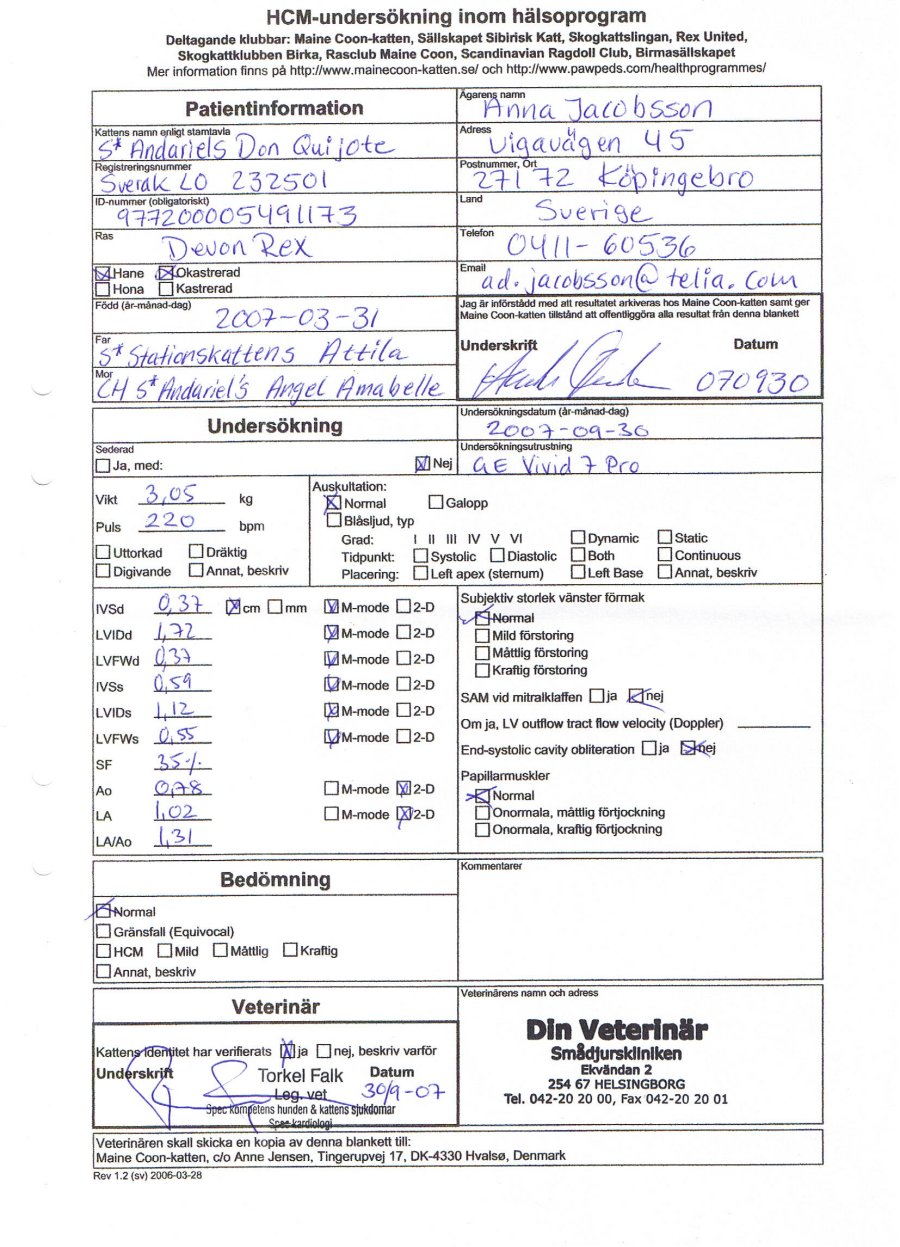 HCM-undersökning inom hälsoprogram
Deltagande klubbar: Maine Coon-katten, Sällskapet Sibirisk Katt, Skogkattslingan, Rex United,
Skogkattklubben Birka, Rasclub Maine Coon, Scandinavian Ragdoll Club, Birmasällskapet
Mer information finns på http://www.mainecoon-katten.se/ och http://www.pawpeds.com/healthprogrammes/
Patientinformation
Kattens namn enligt stamtavla
S* Andariels Don Quijote
Registreringsnummer
Sverak LO 232501
ID-nummer (obligatoriskt)
977200005491173
Ras
Devon Rex
Hane Okastrerad
Hona Kastrerad
Född (år-månad-dag)
2007-03-31
Far
S* Stationskattens Attila
Mor
CH S* Andariel's Angel Amabelle
Ägarens namn
Anna Jacobsson
Adress
Vigavägen 45
Postnummer, Ort
271 72 Köpingebro
Land
Sverige
Telefon
0411-60536
Email
ad.jacobsson@telia.com
Jag är införstådd med att resultatet arkiveras hos Maine Coon-katten samt ger
Maine Coon-katten tillstånd att offentliggöra alla resultat från denna blankett
Underskrift Datum
070930
Undersökning
Sederad
Ja, med: Nej
Undersökningsdatum (år-månad-dag)
2007-09-30
Undersökningsutrustning
GE Vivid 7 Pro
Vikt 3,05 kg
Puls 220 bpm
Uttorkad Dräktig
Digivande Annat, beskriv
Auskultation:
Normal Galopp
Blåsljud, typ
Grad: I II III IV V VI Dynamic Static
Tidpunkt: Systolic Diastolic Both Continuous
Placering: Left apex (sternum) Left Base Annat, beskriv
IVSd 0,37 cm mm M-mode 2-D
LVIDd 1,72 M-mode 2-D
LVFWd 0,37 M-mode 2-D
IVSs 0,59 M-mode 2-D
LVIDs 1,12 M-mode 2-D
LVFWs 0,55 M-mode 2-D
SF 35%
Ao 0,78 M-mode 2-D
LA 1,02 M-mode 2-D
LA/Ao 1,31
Subjektiv storlek vänster förmak
Normal
Mild förstoring
Måttlig förstoring
Kraftig förstoring
SAM vid mitralklaffen ja nej
Om ja, LV outflow tract flow velocity (Doppler)
End-systolic cavity obliteration ja nej
Papillarmuskler
Normal
Onormala, måttlig förtjockning
Onormala, kraftig förtjockning
Bedömning
Normal
Gränsfall (Equivocal)
HCM Mild Måttlig Kraftig
Annat, beskriv
Kommentarer
Veterinär
Kattens identitet har verifierats ja nej, beskriv varför
Underskrift Torkel Falk Datum
Leg. vet 30/9-07
Spec kompetens hunden & kattens sjukdomar
Spec kardiologi
Veterinärens namn och adress
Din Veterinär
Smådjurskliniken
Ekvändan 2
254 67 HELSINGBORG
Tel. 042-20 20 00, Fax 042-20 20 01
Veterinären skall skicka en kopia av denna blankett till:
Maine Coon-katten, c/o Anne Jensen, Tingerupvej 17, DK-4330 Hvalsø, Denmark
Rev 1.2 (sv) 2006-03-28